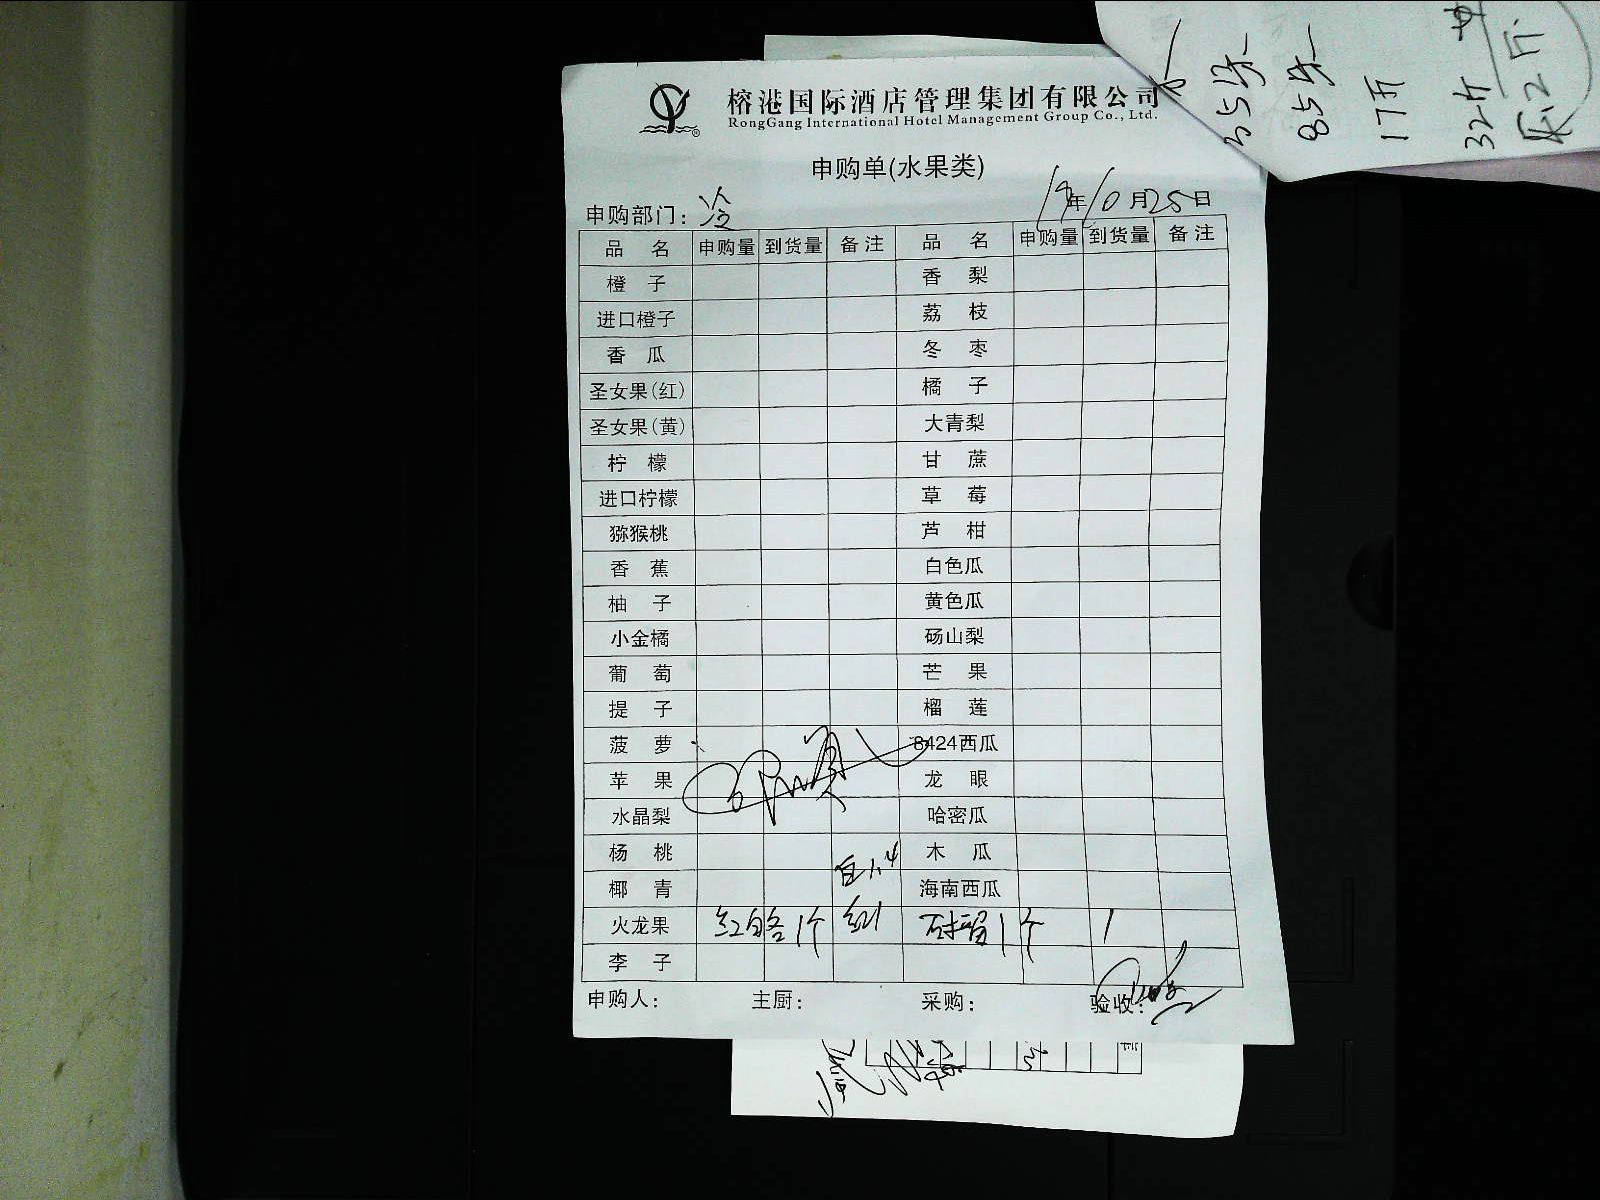 榕港国际酒店管理集团有限公司
RongGang International Hotel Management Group Co., Ltd.
申购单(水果类)
申购部门: 冷 19年10月25日
品 名 申购量 到货量 备注 品 名 申购量 到货量 备注
橙 子 香 梨
进口橙子 荔 枝
香 瓜 冬 枣
圣女果(红) 橘 子
圣女果(黄) 大青梨
柠 檬 甘 蔗
进口柠檬 草 莓
猕猴桃 芦 柑
香 蕉 白色瓜
柚 子 黄色瓜
小金橘 砀山梨
葡 萄 芒 果
提 子 榴 莲
菠 萝 8424西瓜
苹 果 龙 眼
水晶梨 哈密瓜
杨 桃 白1.4 木 瓜
椰 青 海南西瓜
火龙果 红白各1个 红1 石榴1个 1
李 子
申购人: 主厨: 采购: 验收:
35
85
17
324
2斤